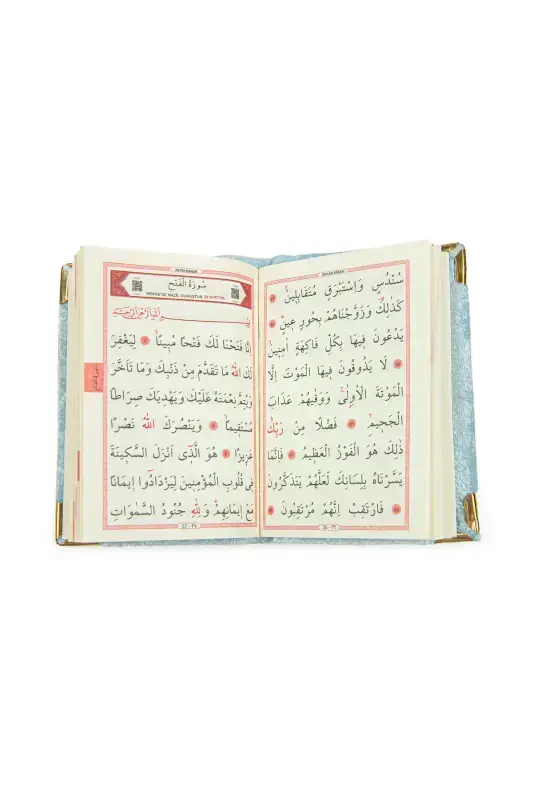 سُنْدُسٍ وَاِسْتَبْرَقٍ مُتَقَابِلٖينَۙ
كَذٰلِكَ۠ وَزَوَّجْنَاهُمْ بِحُورٍ عٖينٍۜ
يَدْعُونَ فٖيهَا بِكُلِّ فَاكِهَةٍ اٰمِنٖينَۙ
لَا يَذُوقُونَ فٖيهَا الْمَوْتَ اِلَّا
الْمَوْتَةَ الْاُو۫لٰىۚ وَوَقٰيهُمْ عَذَابَ
الْجَحٖيمِۙ فَضْلًا مِنْ رَبِّكَۜ
ذٰلِكَ هُوَ الْفَوْزُ الْعَظٖيمُ فَاِنَّمَا
يَسَّرْنَاهُ بِلِسَانِكَ لَعَلَّهُمْ يَتَذَكَّرُونَ
فَارْتَقِبْ اِنَّهُمْ مُرْتَقِبُونَ
سُورَةُ الْفَتْحِ
اِنَّا فَتَحْنَا لَكَ فَتْحًا مُبٖينًاۙ لِيَغْفِرَ
لَكَ اللّٰهُ مَا تَقَدَّمَ مِنْ ذَنْبِكَ وَمَا تَاَخَّرَ
وَيُتِمَّ نِعْمَتَهُ عَلَيْكَ وَيَهْدِيَكَ صِرَاطًا
مُسْتَقٖيمًاۙ وَيَنْصُرَكَ اللّٰهُ نَصْرًا
عَزٖيزًا هُوَ الَّذٖٓى اَنْزَلَ السَّكٖينَةَ
فٖى قُلُوبِ الْمُؤْمِنٖينَ لِيَزْدَادُٓوا اٖيمَانًا
مَعَ اٖيمَانِهِمْۜ وَلِلّٰهِ جُنُودُ السَّمٰوَاتِ